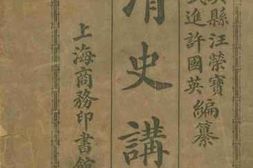 縣汪榮寶
進許國英
編纂
清史講
上海商務印書館